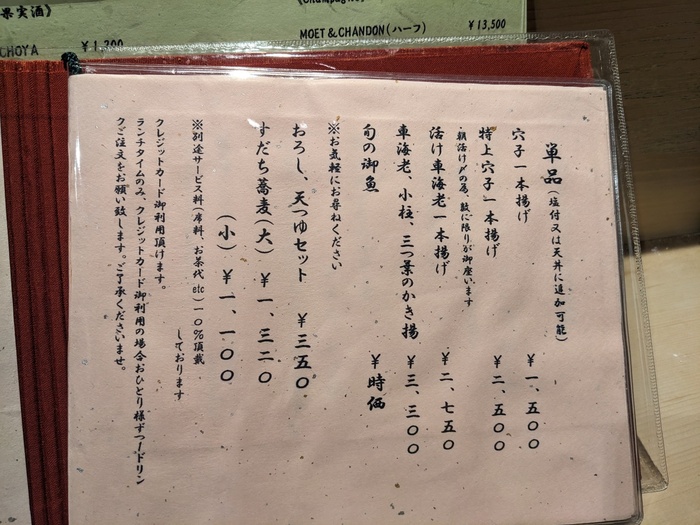 果実酒》
CHOYA ￥1,300
MOET & CHANDON（ハーフ） ￥13,500
単品（塩付又は天丼に追加可能）
穴子一本揚げ ￥一、五〇〇
特上穴子一本揚げ ￥二、五〇〇
朝活け〆の為、数に限りが御座います
活け車海老一本揚げ ￥二、七五〇
車海老、小柱、三つ葉のかき揚 ￥三、三〇〇
旬の御魚 ￥時価
※お気軽にお尋ねください
おろし、天つゆセット ￥三五〇
すだち蕎麦（大） ￥一、三二〇
（小） ￥一、一〇〇
※別途サービス料（席料、お茶代 etc）一〇％頂戴
しております
クレジットカード御利用頂けます。
ランチタイムのみ、クレジットカード御利用の場合おひとり様ずつ一ドリン
クご注文をお願い致します。ご了承くださいませ。